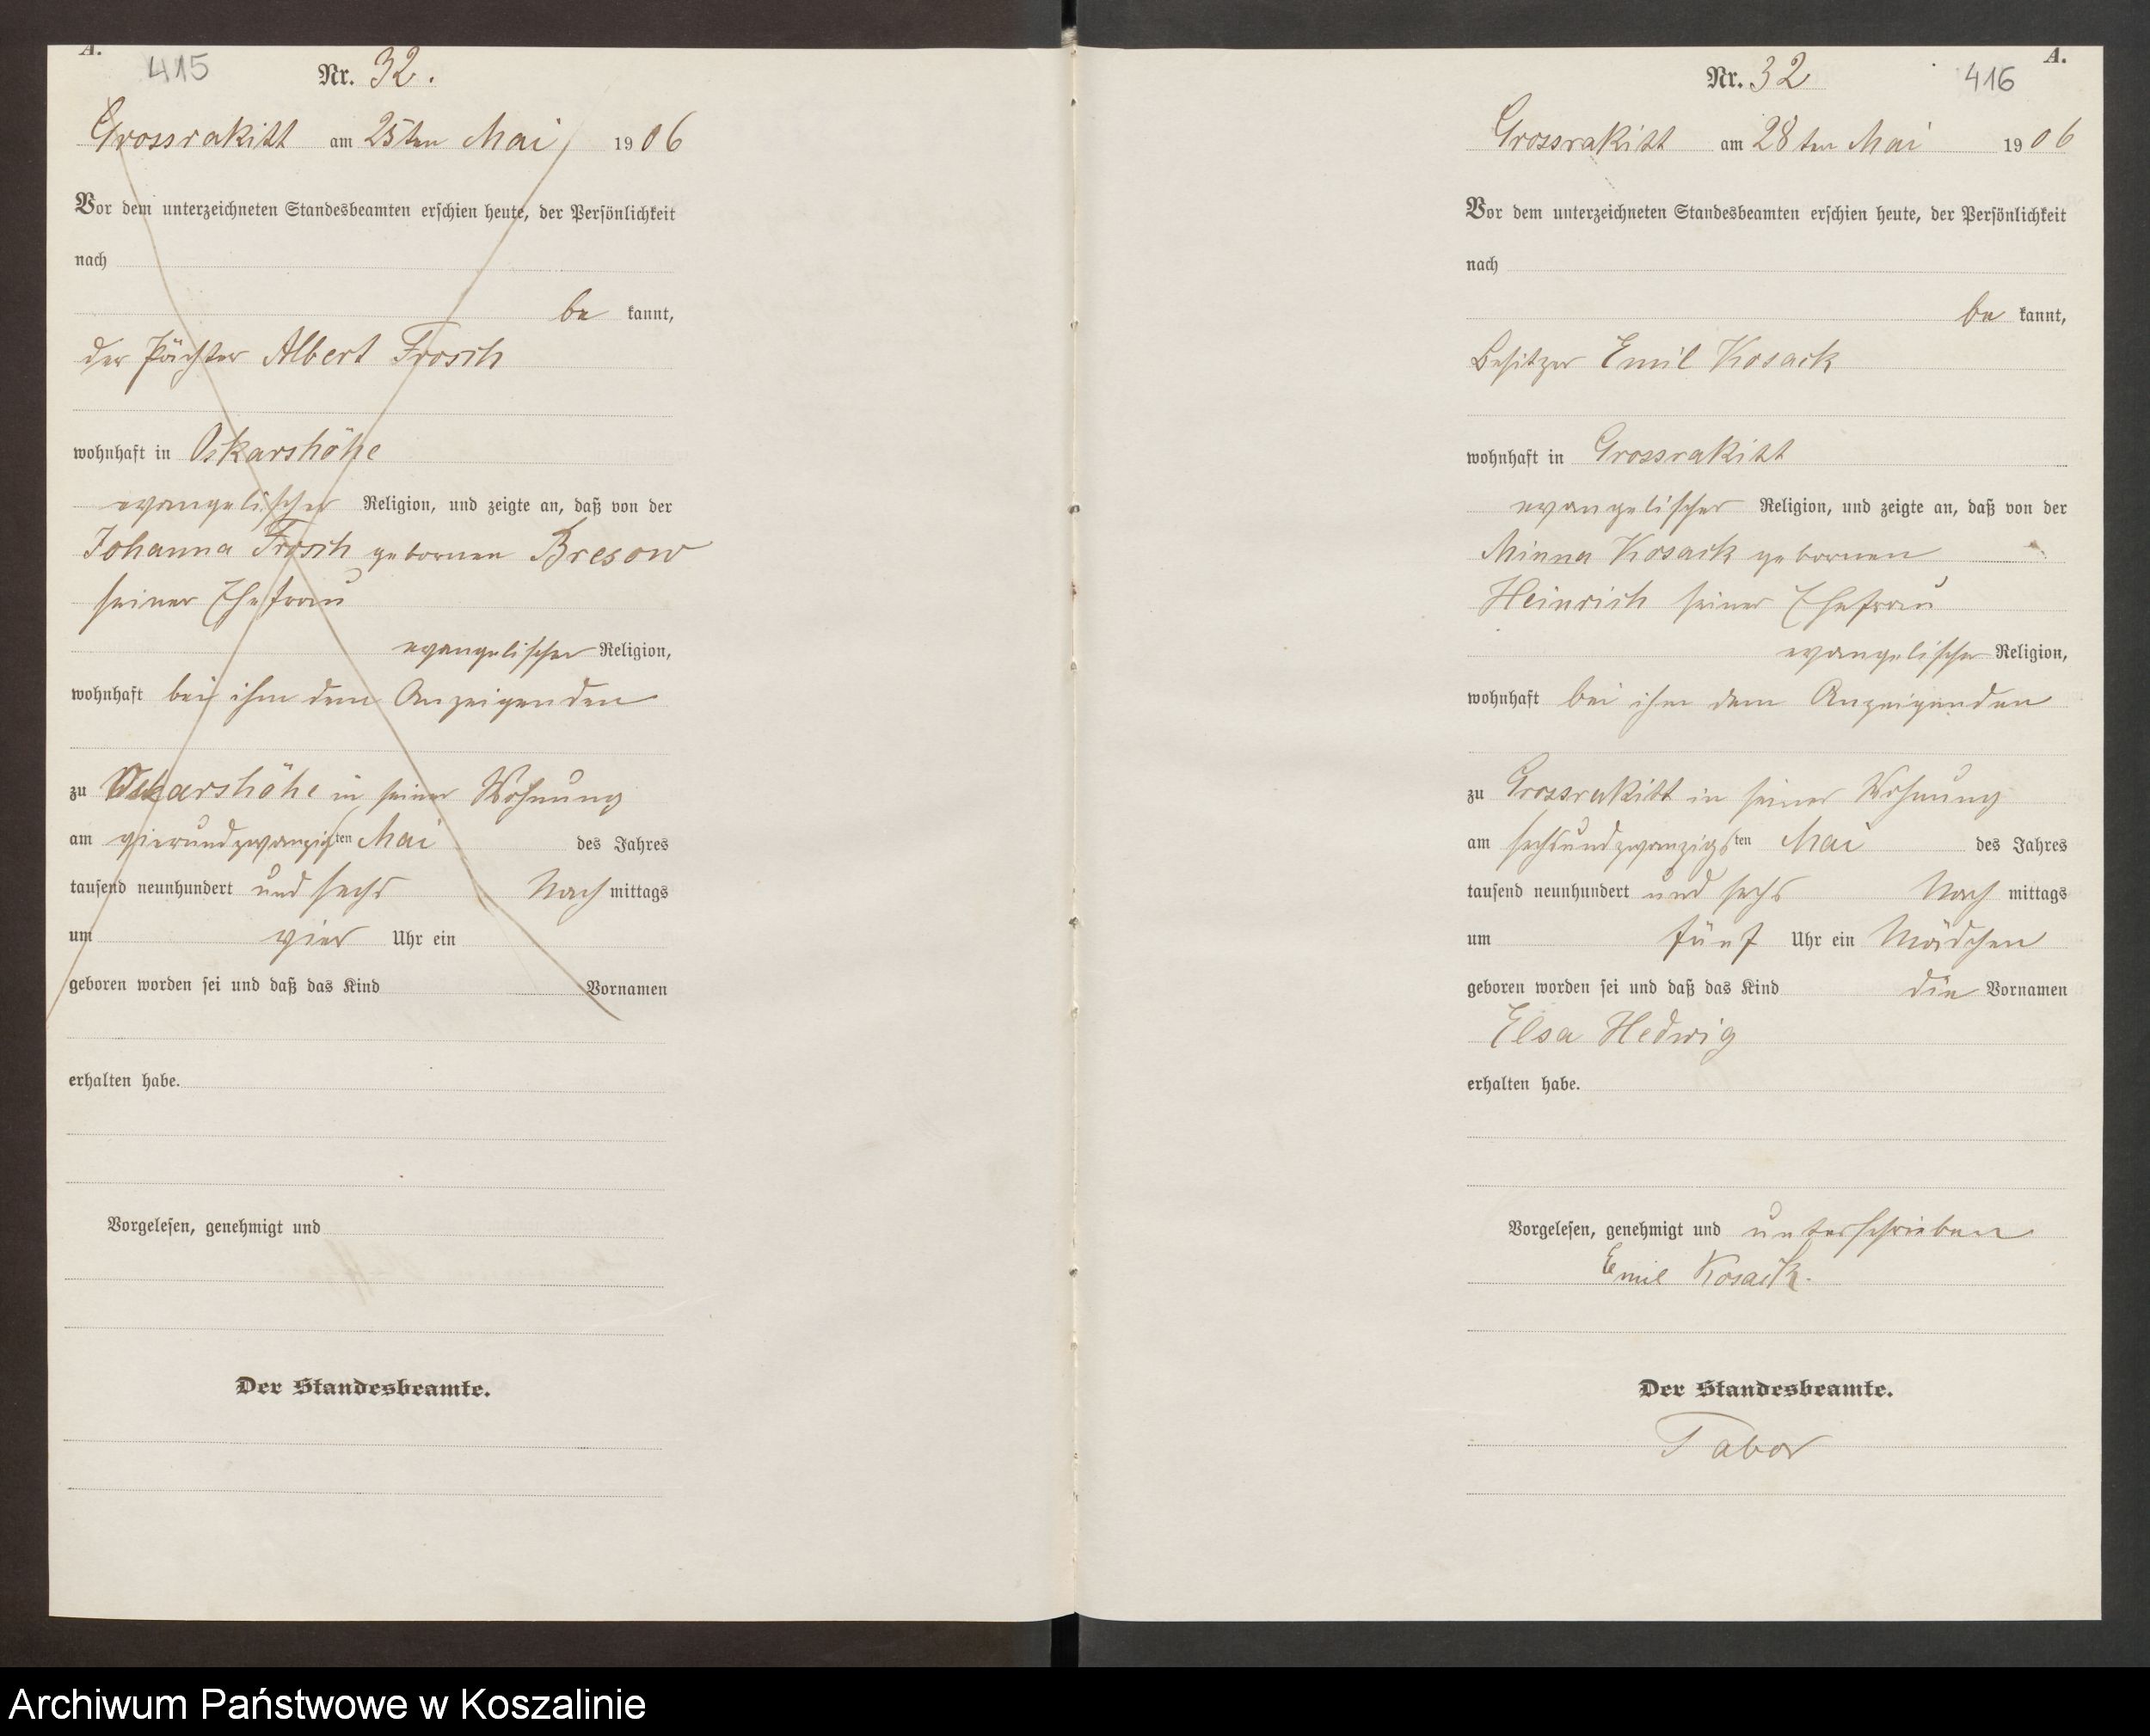 A.
415
Nr. 32.
Grossrakitt am 25ten Mai 1906
Vor dem unterzeichneten Standesbeamten erschien heute, der Persönlichkeit
nach
be kannt,
der Pächter Albert Frosch
wohnhaft in Oskarshöhe
evangelischer Religion, und zeigte an, daß von der
Johanna Frosch gebornen Bresow
seiner Ehefrau
evangelischer Religion,
wohnhaft bei ihm dem Anzeigenden
zu Oskarshöhe in seiner Wohnung
am vierundzwanzigsten Mai des Jahres
tausend neunhundert und sechs Nach mittags
um vier Uhr ein
geboren worden sei und daß das Kind Vornamen
erhalten habe.
Vorgelesen, genehmigt und
Der Standesbeamte.
A.
Nr. 32
416
Grossrakitt am 28ten Mai 1906
Vor dem unterzeichneten Standesbeamten erschien heute, der Persönlichkeit
nach
be kannt,
Besitzer Emil Kosack
wohnhaft in Grossrakitt
evangelischer Religion, und zeigte an, daß von der
Minna Kosack gebornen
Heinrich seiner Ehefrau
evangelischer Religion,
wohnhaft bei ihm dem Anzeigenden
zu Grossrakitt in seiner Wohnung
am sechsundzwanzigsten Mai des Jahres
tausend neunhundert und sechs Nach mittags
um fünf Uhr ein Mädchen
geboren worden sei und daß das Kind die Vornamen
Elsa Hedwig
erhalten habe.
Vorgelesen, genehmigt und unterschrieben
Emil Kosack.
Der Standesbeamte.
Tabor
Archiwum Państwowe w Koszalinie